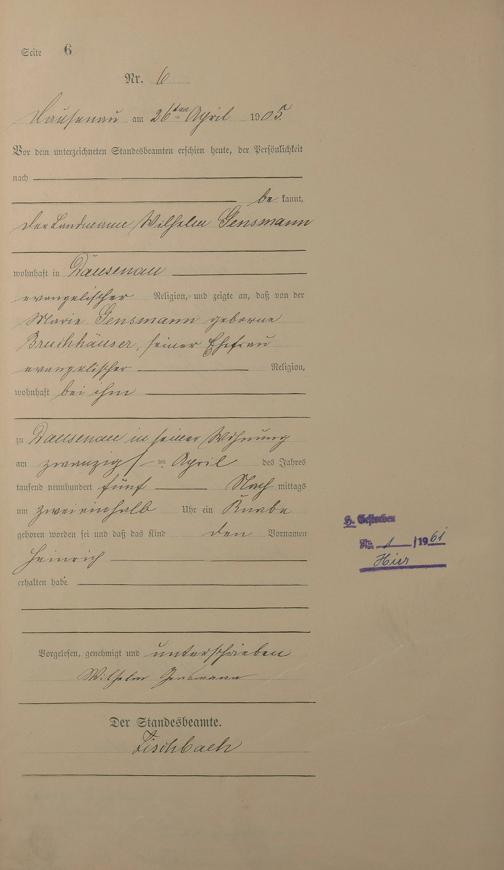 Seite 6
Nr. 6
Dausenau am 26ten April 1905
Vor dem unterzeichneten Standesbeamten erschien heute, der Persönlichkeit
nach
be kannt,
der Landmann Wilhelm Gensmann
wohnhaft in Dausenau
evangelischer Religion, und zeigte an, daß von der
Marie Gensmann geborne
Bruchhäuser, seiner Ehefrau
evangelischer Religion,
wohnhaft bei ihm
zu Dausenau in seiner Wohnung
am zwanzigsten April des Jahres
tausend neunhundert fünf Nach mittags
um zweieinhalb Uhr ein Knabe
geboren worden sei und daß das Kind den Vornamen
Heinrich
erhalten habe
Vorgelesen, genehmigt und unterschrieben
Wilhelm Gensmann
Der Standesbeamte.
Fischbach
H. Gestorben
Nr. 1 /1961
Hier